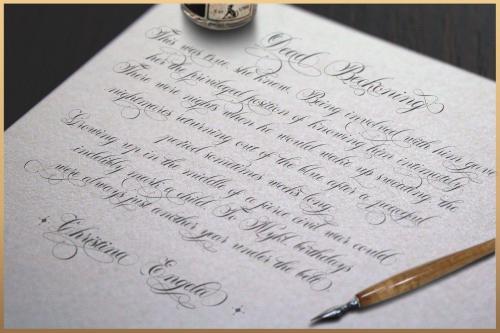 Dead Beckoning
This was true, she knew. Being involved with him gave
her the privileged position of knowing him intimately
There were nights when he would wake up sweating the
nightmares returning out of the blue after a peaceful
period sometimes weeks long
Growing up in the middle of a fierce civil war could
indelibly mark a child. In Flight birthdays
were always just another year under the belt
Christina Engela